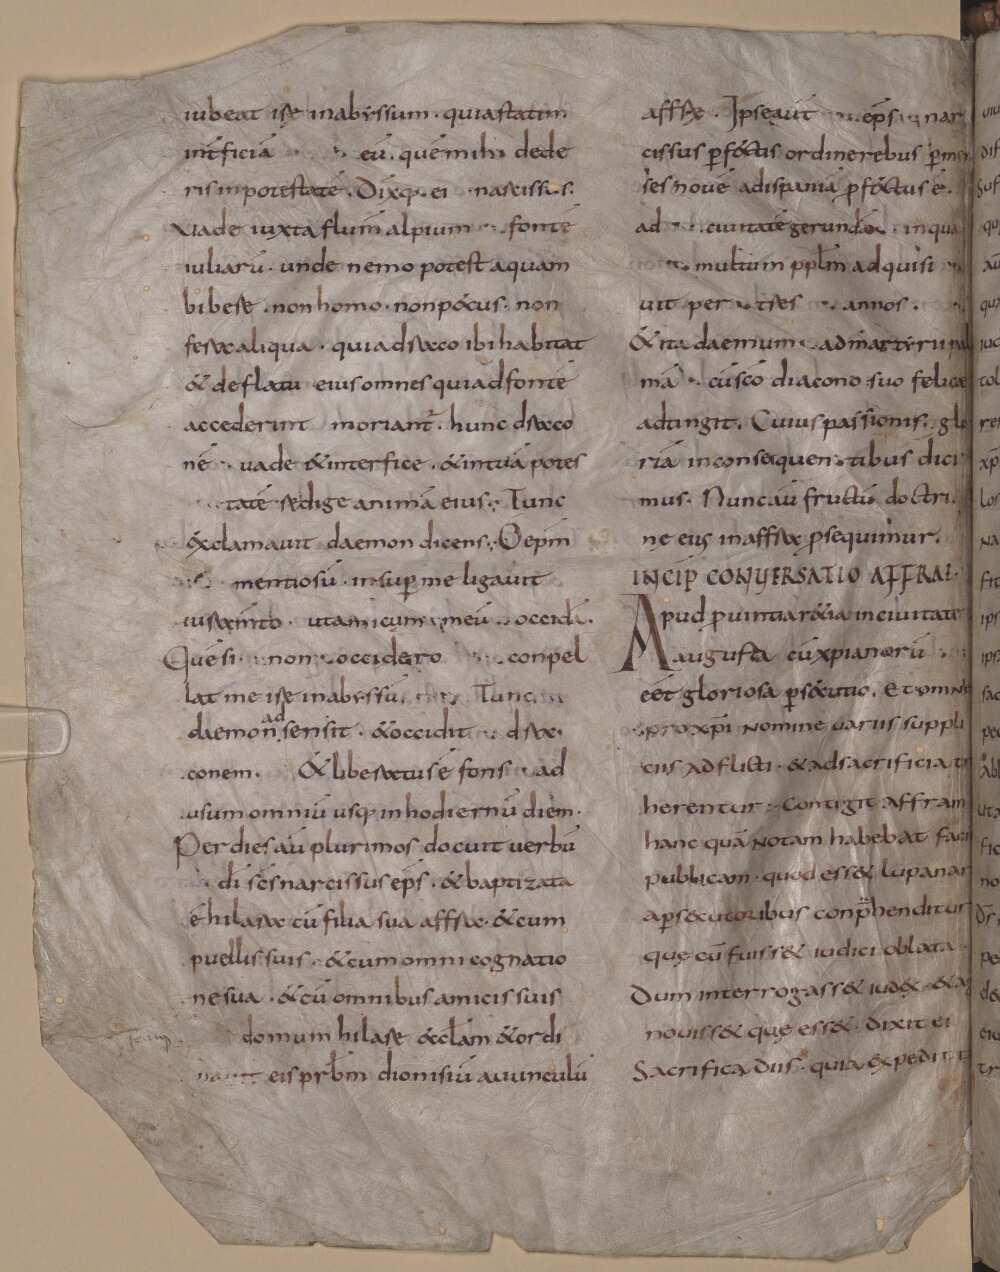 iubeat ire inabyssum · quiastatim
interficiā eū · quēmihi dede
risinpotestatē · Dixq; ei narcissus:
Vade iuxtaflum̄ alpium fontē
iuliarū · unde nemo potest aquam
bibere · nonhomo · nonpecus · non
feraaliqua · quiadraco ibihabitat
& deflatu eiusomnesquiadfontē
accederint moriant̄ · hunc draco
nē · uade &interfice · &intuā potes
tatē redige animā eius · Tunc
exclamauit daemon dicens · O ep̄m
mentiosū · insup̄ me ligauit
iusam̄to · utamicum meū occidā ·
Quēsi non occidero conpel
lat me ire inabyssū Tunc
daemon adsensit · &occidit dra
conem · & liberatus ē fons ad
usum omniū usq; inhodiernū diem ·
Per dies aū plurimos docuit uerbū
di sc̄s narcissus ep̄s · & baptizata
ē hilara cū filia sua affra · &cum
puellis suis · &cum omni cognatio
ne sua · &cū omnibus amicis suis
domum hilare &cl̄am &ordi
nauit eis prb̄m dionisiū auunculū
affre · Ipse aūt ep̄s nar
cissus p̄fectis ordine rebus p̄ men
ses nouē adispaniā p̄fectus ē ·
ad ciuitatē gerundā · inqua
multum ppl̄m adquisi
uit per tres annos ·
&ita daemum admartyrii pal
mā cūsc̄o diacono suo felice
adtingit · Cuius passionis glo
riā inconsequentibus dici
mus · Nunc aū fructū doctri
ne eius inaffra p̄sequimur ·
INCIP CONVERSATIO AFFRAE ·
Apud p̄uintiarecia inciuitate
augusta cū xpianorū
eet gloriosa p̄secutio · Et omnes
pro xpī nomine uariis suppli
ciis adflicti · &adsacrificia tra
herentur · Contigit affram
hanc quā notam habebat faci
publicam · quod esset lupanar
apersecutoribus conp̄henditur
que cū fuisset iudici oblata
Dum interrogasset iudex · &ag
nouisset que esset · dixit ei
Sacrifica diis · quia expedit t